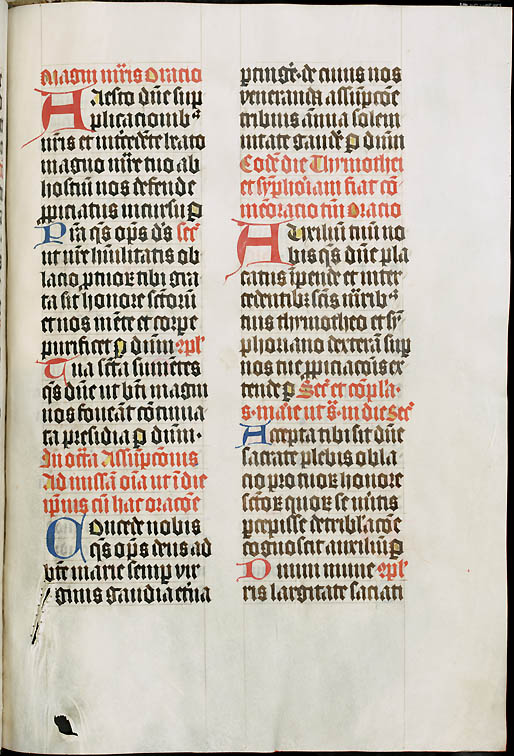 Magni mr̄is Oratio
Adesto dn̄e sup
plicacionib⁹
nr̄is et intercedēte beato
magno mr̄e tuo ab
hostiū nos defende
ppiciatus incursu p
Pr̄a qs̄ om̄ps ds̄ Sec̄
ut nr̄e hūilitatis ob
lacio p tuor̄ tibi gra
ta sit honore sc̄torū
et nos mēte et corpe
purificet p dn̄m 9pl̄
Tua sc̄ta sumētes
qs̄ dn̄e ut bt̄i magni
nos foueāt cōtinua
ta presidia p dn̄m·
In octa Assūpcōnis
Ad missā oīa ut ī die
ip̄ius cū hac oracōe
Concede nobis
qs̄ om̄ps deus ad
bt̄e marie semp vir
ginis gaudia et̄na
ptinge· de cuius nos
veneranda assūpcōe
tribuis annua solem
nitate gaude p dn̄m
Eodē die Thymothei
et syphoriani fiat cō
memoracio cū Oratio
Auxiliū tuū no
bis qs̄ dn̄e pla
catus īpende et inter
cedentib; sc̄is mr̄ib⁹
tuis thymotheo et sy
phoriano dexterā sup
nos tue ppiciacōis ex
tende p Sec̄ et cōpl̄a·
s· marie ut s· in die Sec̄
Accepta tibi sit dn̄e
sacrate plebis obla
cio pro tuor honore
sc̄tor quor se meritis
pcepisse de tribl̄acōe
cognoscit auxiliū p
Diuini munē 9pl̄
ris largitate saciati